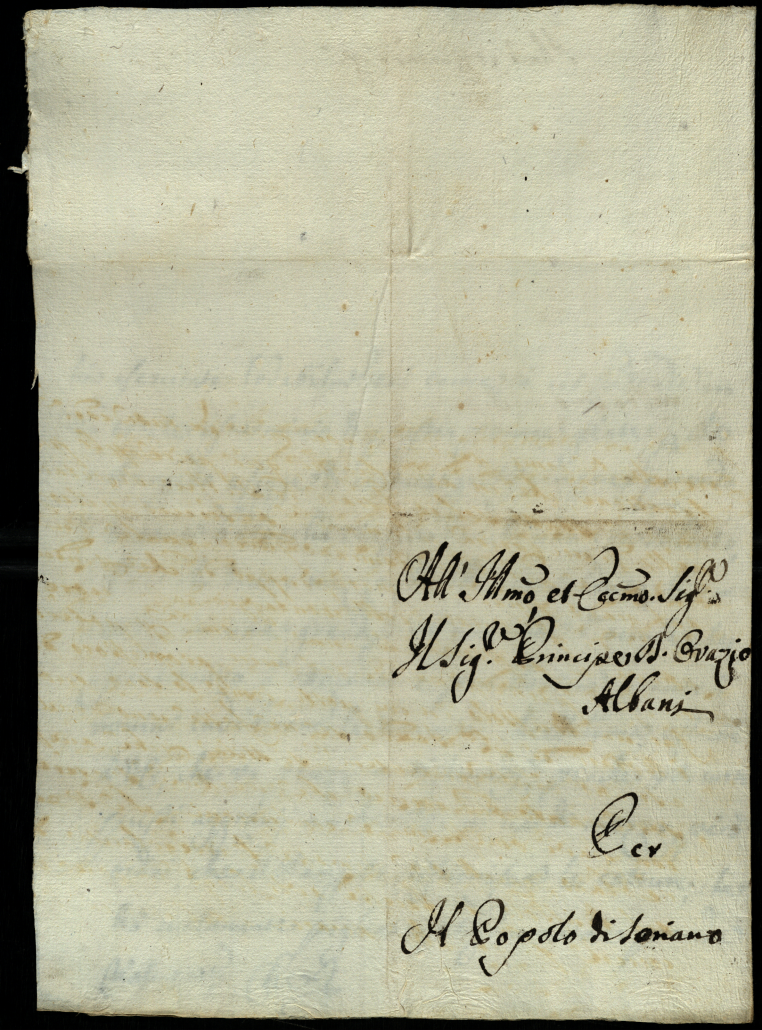 All' Ill.mo, et Ecc.mo Sig.re
Il Sig.re Principe D. Orazio
Albani
Per
Il Popolo di Soriano